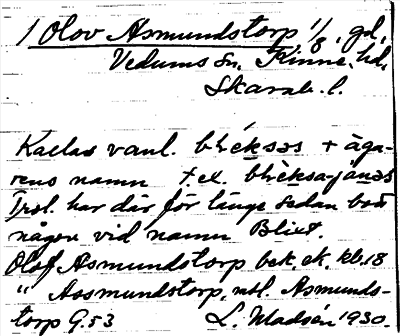 1 Olov Asmundstorp 1/8, gd,
Vedums sn, Kinne hd,
Skarab. l.
Kallas vanl. blìksəs + äga-
rens namn t.ex. blìksa-jánəs
Trol. har där för länge sedan bott
någon vid namn Blixt.
Olof Asmundstorp bek. ek. kb. 18
" Assmundstorp, nol. Asmunds-
torp G.53 L. Madsén 1930.